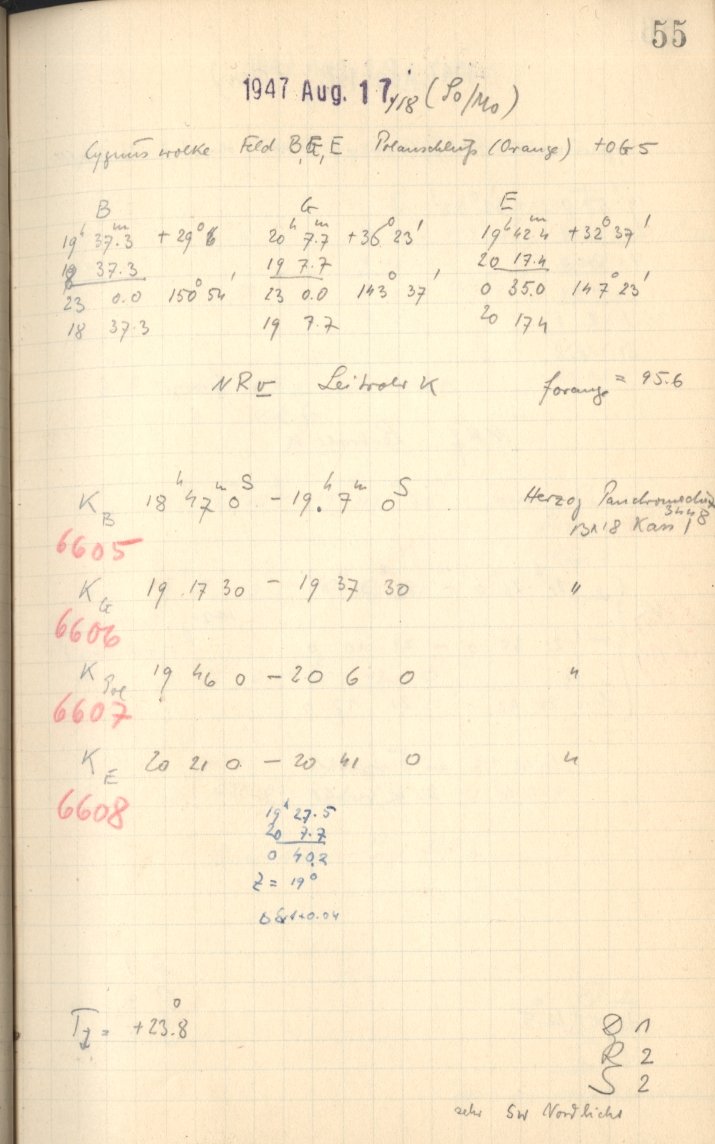 55
1947 Aug. 17./18 (So/Mo)
Cygnuswolke Feld B, G, E Polanschluß (Orange) + OG 5
B G E
19ʰ 37.3ᵐ + 29° 6' 20ʰ 7.7ᵐ + 36° 23' 19ʰ 42.4ᵐ + 32° 37'
37.3 19 7.7 20 17.4
23 0.0 150° 54' 23 0.0 143° 37' 0 35.0 147° 23'
18 37.3 19 7.7 20 17.4
NR V Leitrohr K f orange = 95.6
K_B 18ʰ 47ᵐ 0ˢ – 19ʰ 7ᵐ 0ˢ Herzog Panchromedux
6605 3448
Kass 1
K_G 19 17 30 – 19 37 30 "
6606
K_Pol 19 46 0 – 20 6 0 "
6607
K_E 20 21 0 – 20 41 0 "
6608
19ʰ 27.5
20 7.7
0 40.2
Z = 19°
T_Z = + 23.8°
1
R 2
S 2
sehr sw Nordlicht